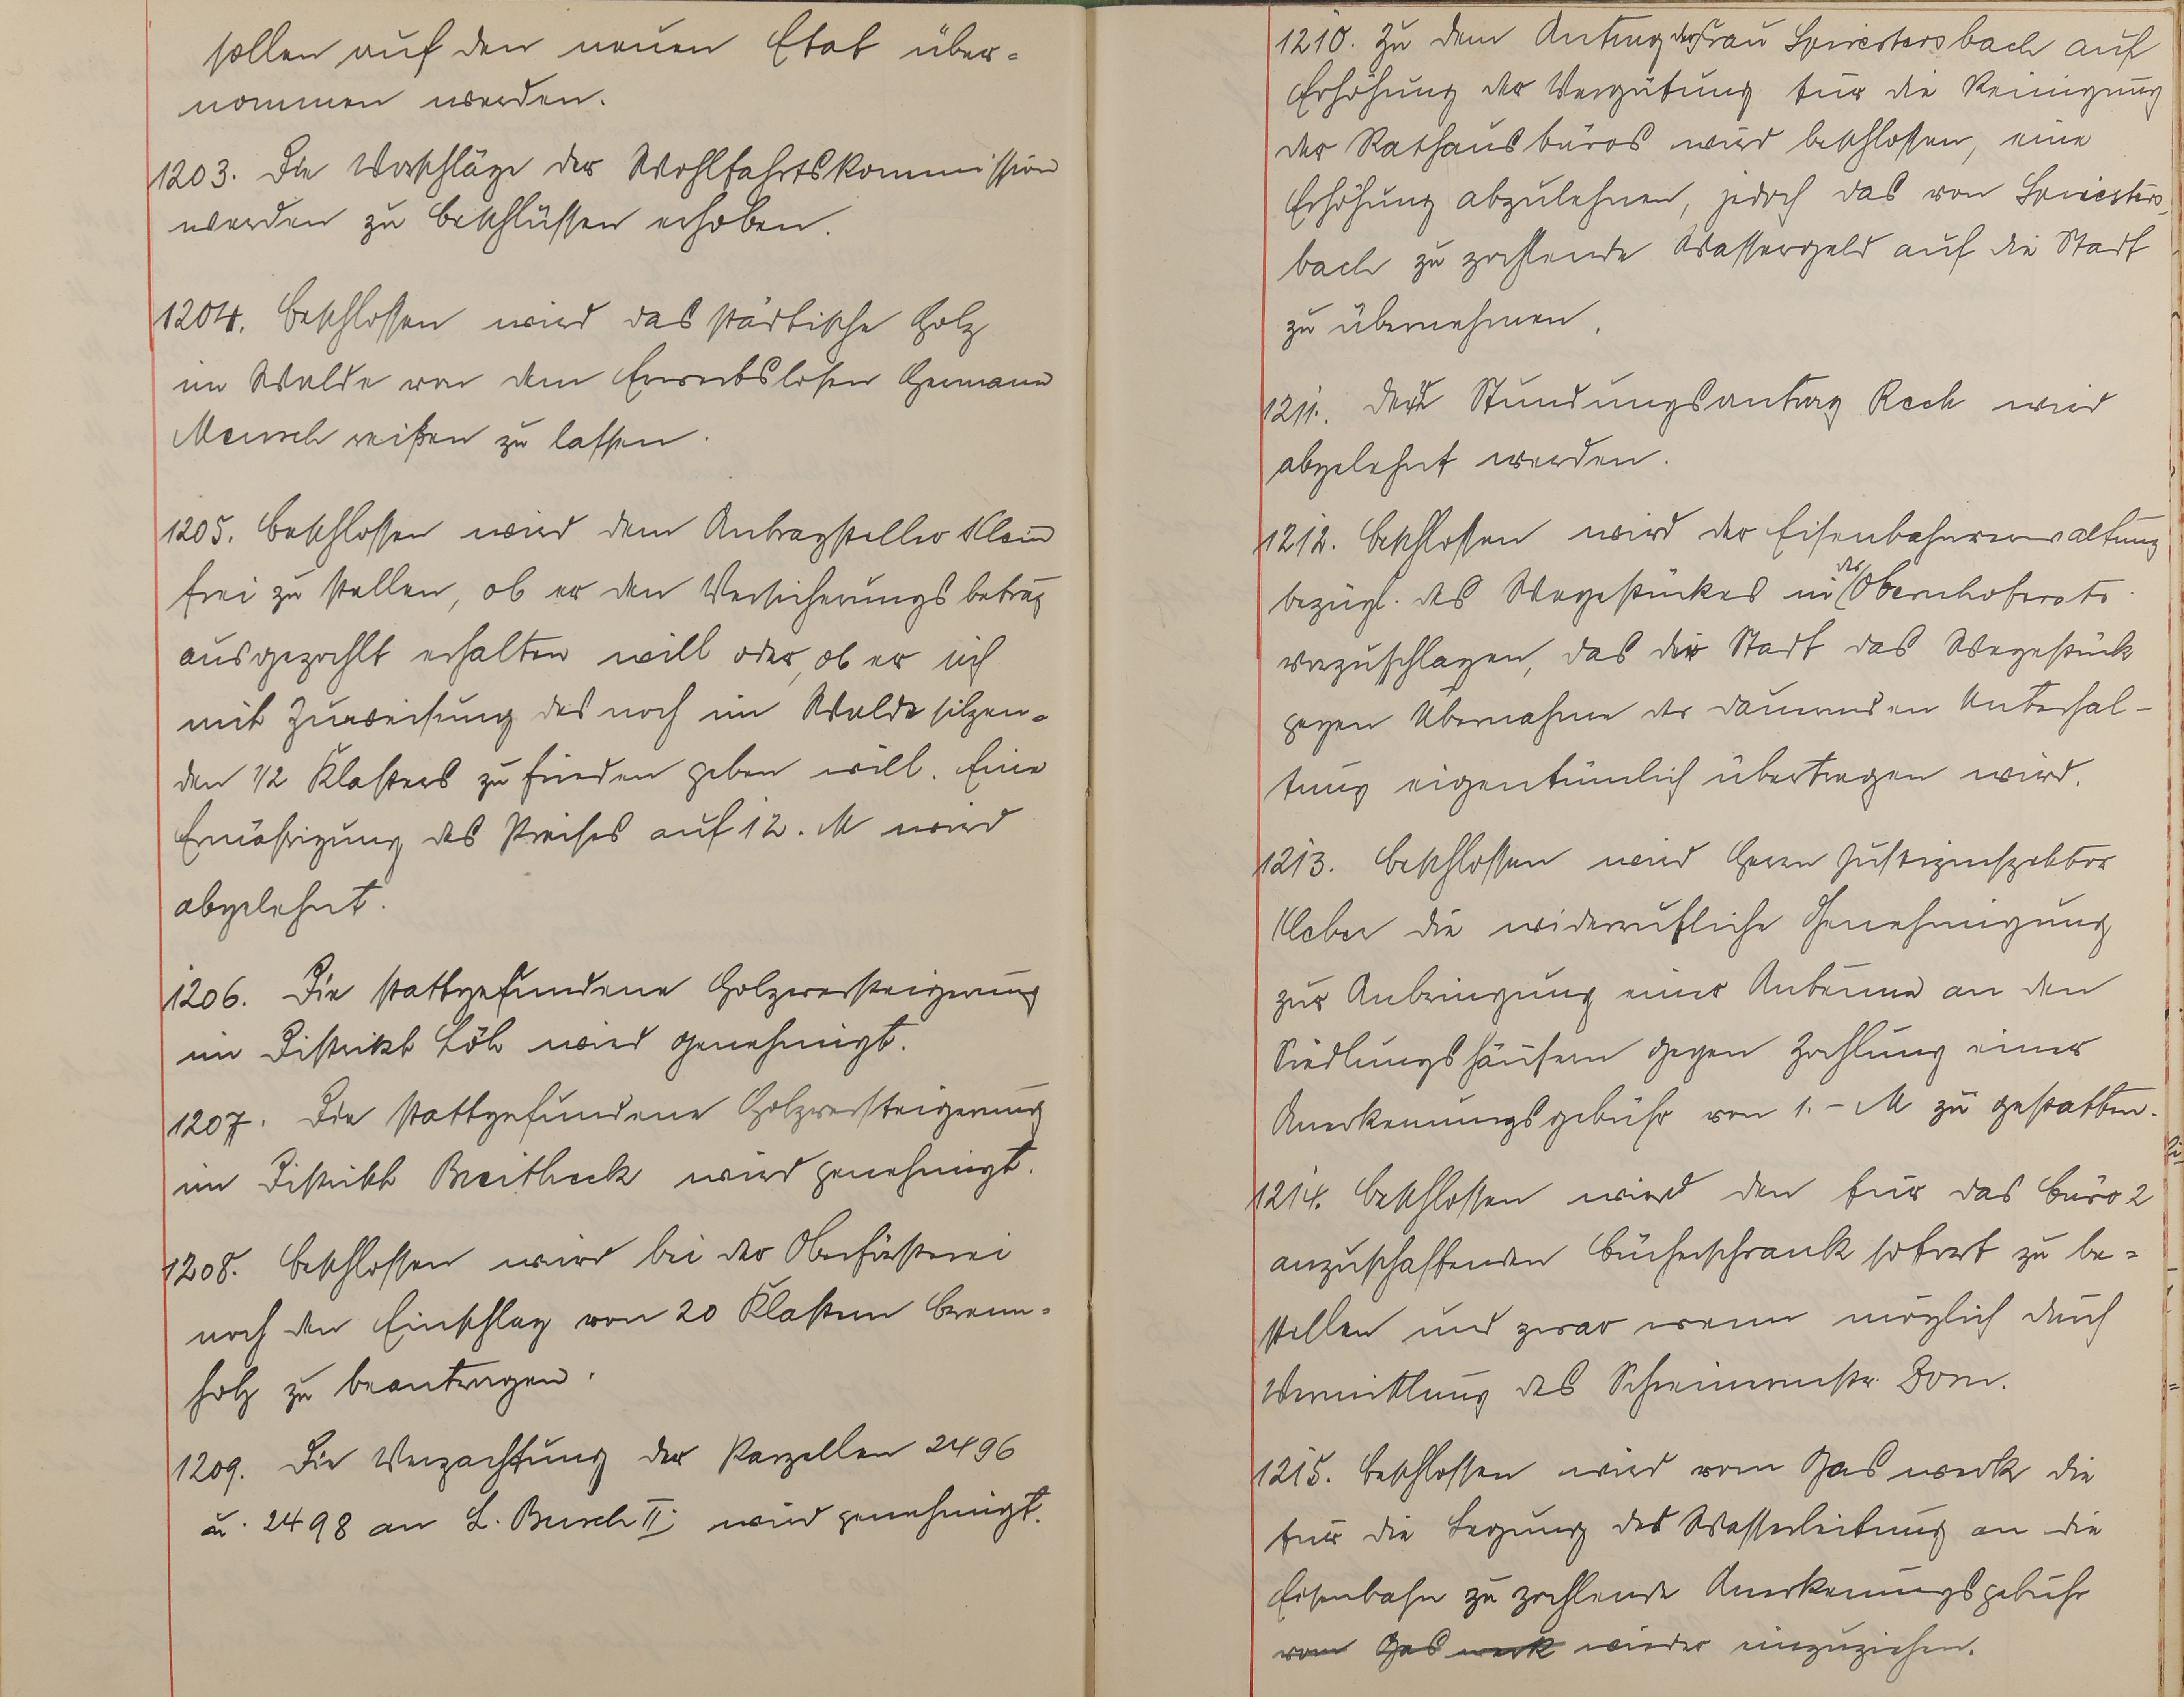 sollen auf den neuen Etat über-
nommen werden.
1203. Die Vorschläge der Wohlfahrtskommission
werden zu Beschlüssen erhoben.
1204. Beschlossen wird das städtische Holz
im Walde von dem Erwerbslosen Hermann
Mensch reißen zu lassen.
1205. Beschlossen wird dem Antragsteller Klein
frei zu stellen, ob er den Versicherungsbetrag
ausgezahlt erhalten will oder, ob er sich
mit Zuweisung des noch im Walde sitzen-
den 1/2 Klafters zu frieden geben will. Eine
Ermäßigung des Preises auf 12. M wird
abgelehnt.
1206. Die stattgefundene Holzversteigerung
im Distrikt Löh wird genehmigt.
1207. Die stattgefundene Holzversteigerung
im Distrikt Breitheck wird genehmigt.
1208. Beschlossen wird bei der Oberförsterei
noch den Einschlag von 20 Klaftern Brenn-
holz zu beantragen.
1209. Die Verpachtung der Parzellen 2496
u. 2498 an L. Busch II. wird genehmigt.
1210. Zu dem Antrag der Frau Spriestersbach auf
Erhöhung der Vergütung für die Reinigung
der Rathausbüros wird beschlossen, eine
Erhöhung abzulehnen, jedoch das von Spriesters-
bach zu zahlende Wassergeld auf die Stadt
zu übernehmen.
1211. Der Stundungsantrag Rech wird
abgelehnt werden.
1212. Beschlossen wird der Eisenbahnverwaltung
bezügl. des Wegestückes in der Obernhoferstr.
vorzuschlagen, das der Stadt das Wegestück
gegen Übernahme der dauernden Unterhal-
tung eigentümlich übertragen wird.
1213. Beschlossen wird Herrn Justizinspektor
die widerrufliche Genehmigung
zur Anbringung einer Antenne an den
Siedlungshäusern gegen Zahlung einer
Anerkennungsgebühr von 1.- M zu gestatten.
1214. Beschlossen wird den für das Büro 2
anzuschaffenden Bücherschrank sofort zu be-
stellen und zwar wenn möglich durch
Vermittlung des Schreinermstr. Dorn.
1215. Beschlossen wird vom Gaswerk die
für die Legung der Wasserleitung an die
Eisenbahn zu zahlende Anerkennungsgebühr
vom Gaswerk wieder einzuziehen.